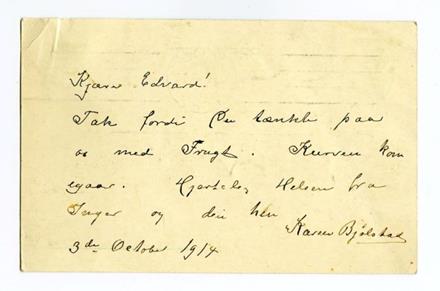 Kjære Edvard!
Tak fordi Du tænkte paa
os med Frugt. Kurven kom
igaar. Hjertelig Hilsen fra
Inger og din hen
Karen Bjølstad
3de October 1914